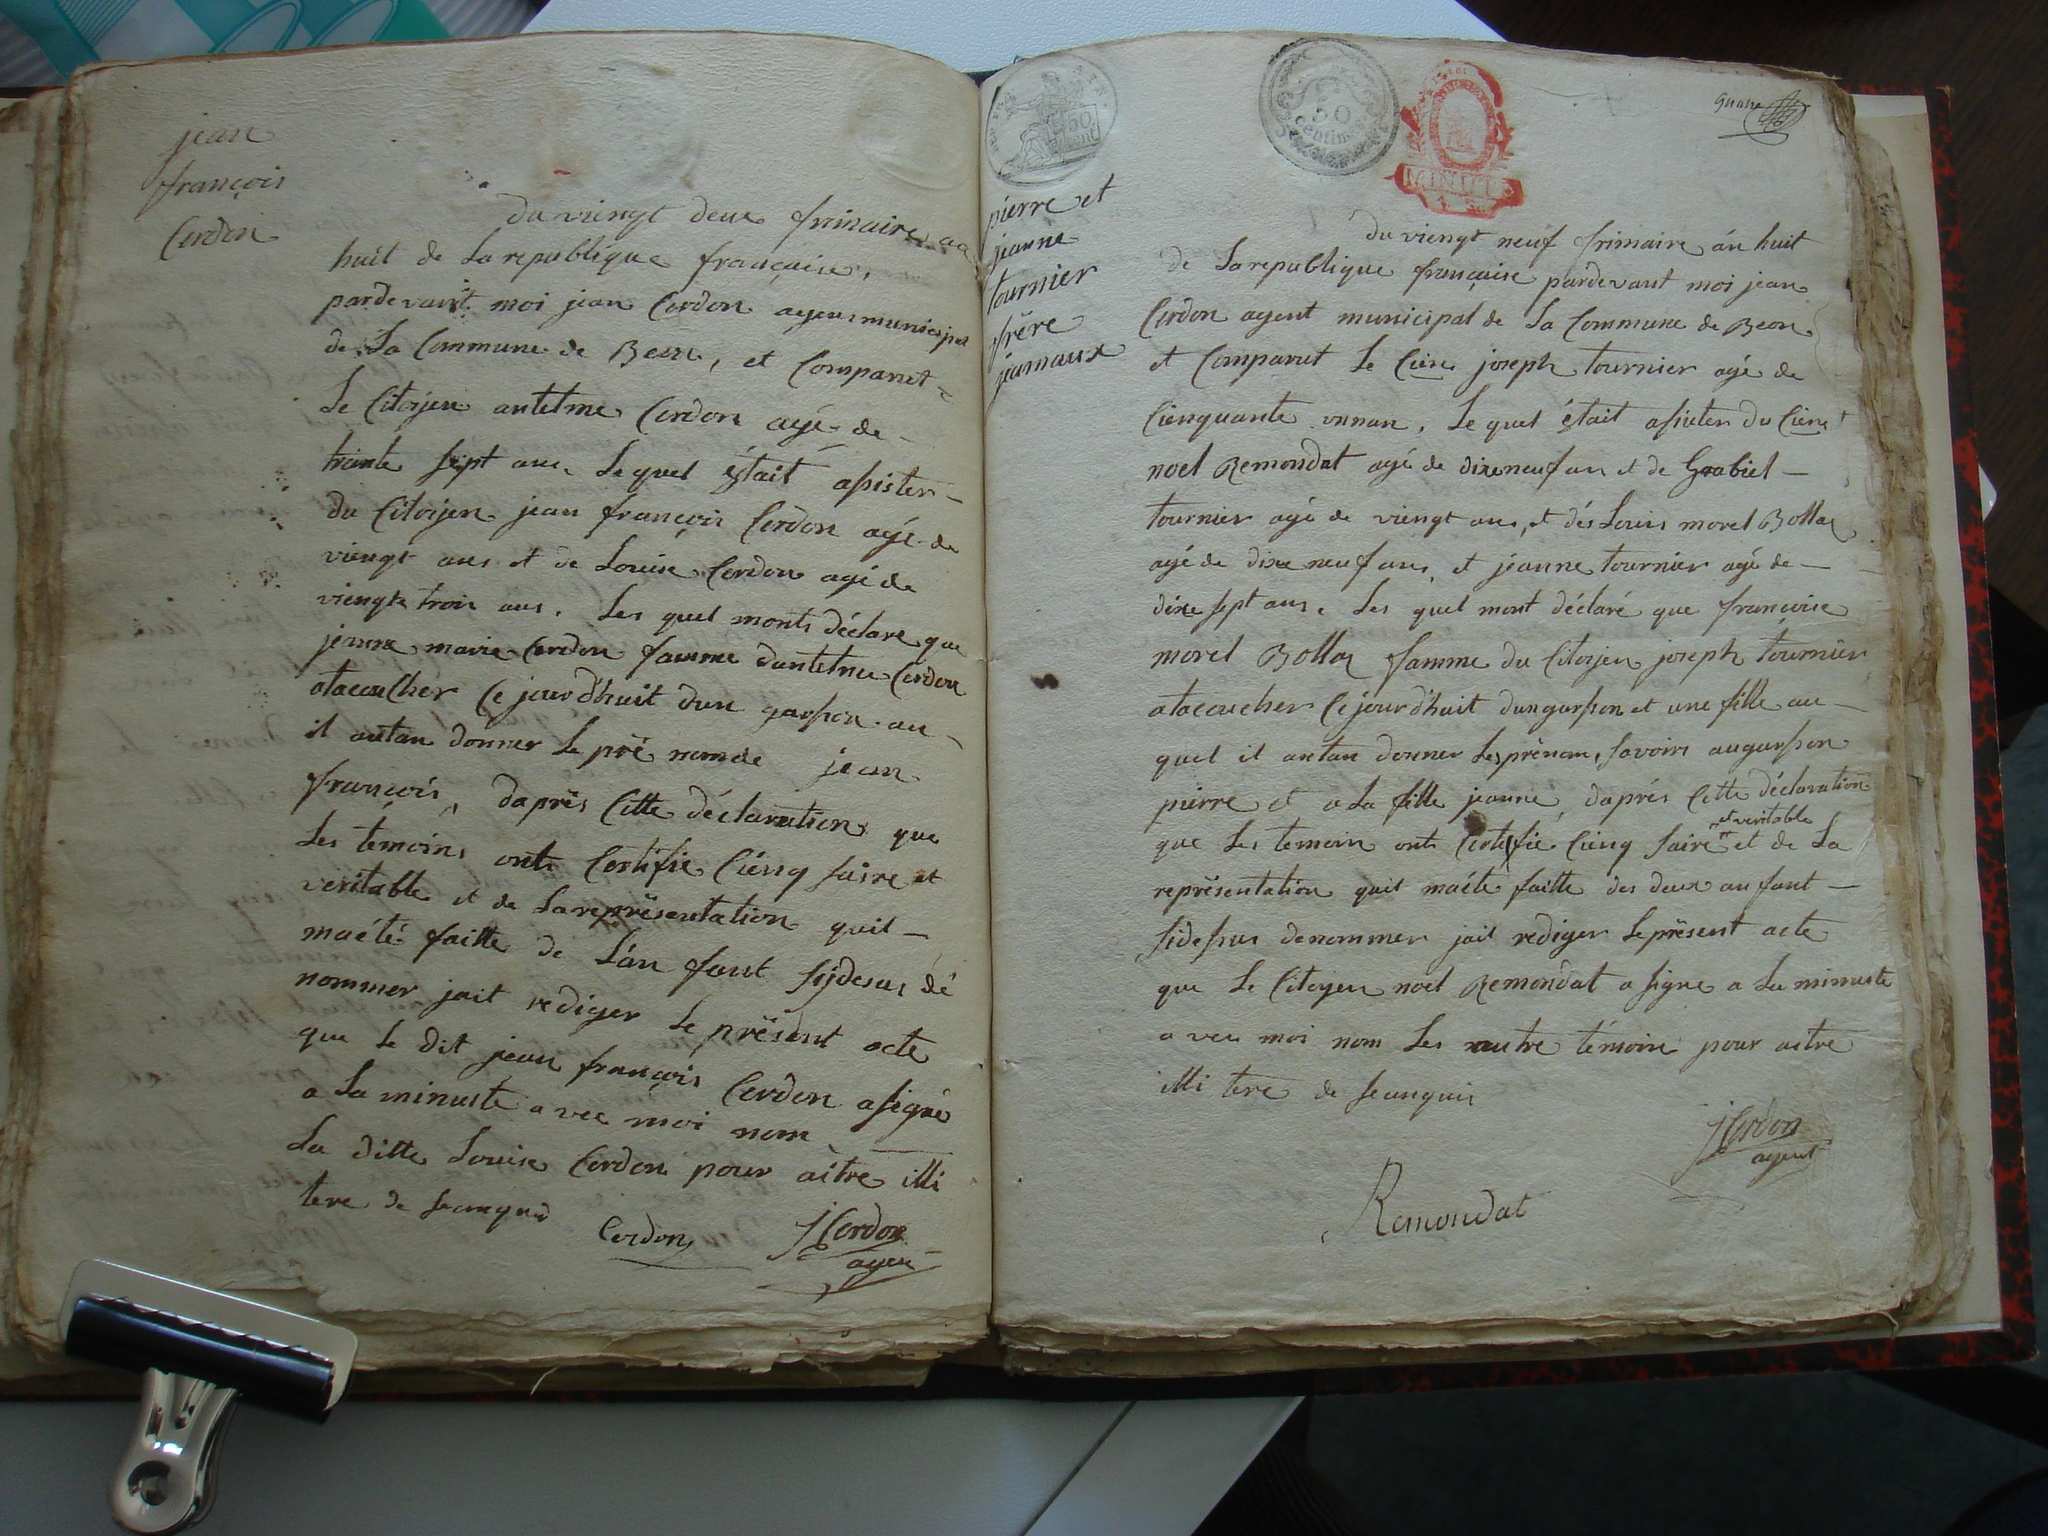 jean
françois
Cerdon
du viengt deux frimaire an
huit de La republique française,
pardevant moi jean Cerdon agent municipal
de La Commune de Beon, et Comparut
Le Citoijen antelme Cerdon agé de
trante sept ans Le quel était asister
du Citoijen jean françois Cerdon agé de
viengt ans et de Louise Cerdon agé de
viengts trois ans. Les quel monts déclare que
jeanne marie Cerdon famme dantelme Cerdon
atacoucher Ce jourd'huit d'un garson au
il antan donner Le pré nom de jean
françois, daprès Cette déclaration que
Les temoins onts Certifie Ciénq saire et
veritable et de La représentation quil
maété faitte de L'an fant sijdesus dé
nommer jait rediger Le présent acte
que Le dit jean françois Cerdon asigné
a La minuste a vec moi nom
La ditte Louise Cerdon pour aitre illi
tere de Ce
Cerdon
J Cerdon
agent
50
cent
50
Centim
MINUTE
quatre
pierre et
jeanne
tournier
frère
jeamaux
du viengt neuf frimaire án huit
de La republique française pardevant moi jean
Cerdon agent municipal de La Commune de Beon
et Comparut Le Cien joseph tournier agé de
Cienquante unnan, Le quel était asister du Cien
noel Remondat agé de dixe neuf an et de Grabiel
tournier agé de viengt ans, et dés Louis morel Bollaz
agé de dixe neuf ans, et jeanne tournier agé de
dixe sept ans. Les quel mont déclaré que françoise
morel Bollaz famme du Citoijen joseph tournier
atacoucher Ce jourd'huit dungarson et une fille au
quel il antan donner Les prénom, savoirs augarson
pierre et a La fille jeanne, daprés Cette déclaration
que Les temoin onts Certifie Cienq saire et veritable et de La
représentation quil maété faitte des deux anfant
sidesus denommer jait rediger Le présent acte
que Le Citoyen noel Remondat a signe a La minuste
a vec moi nom Les autre témoins pour aitre
illi tere de
J Cerdon
agent
Remondat